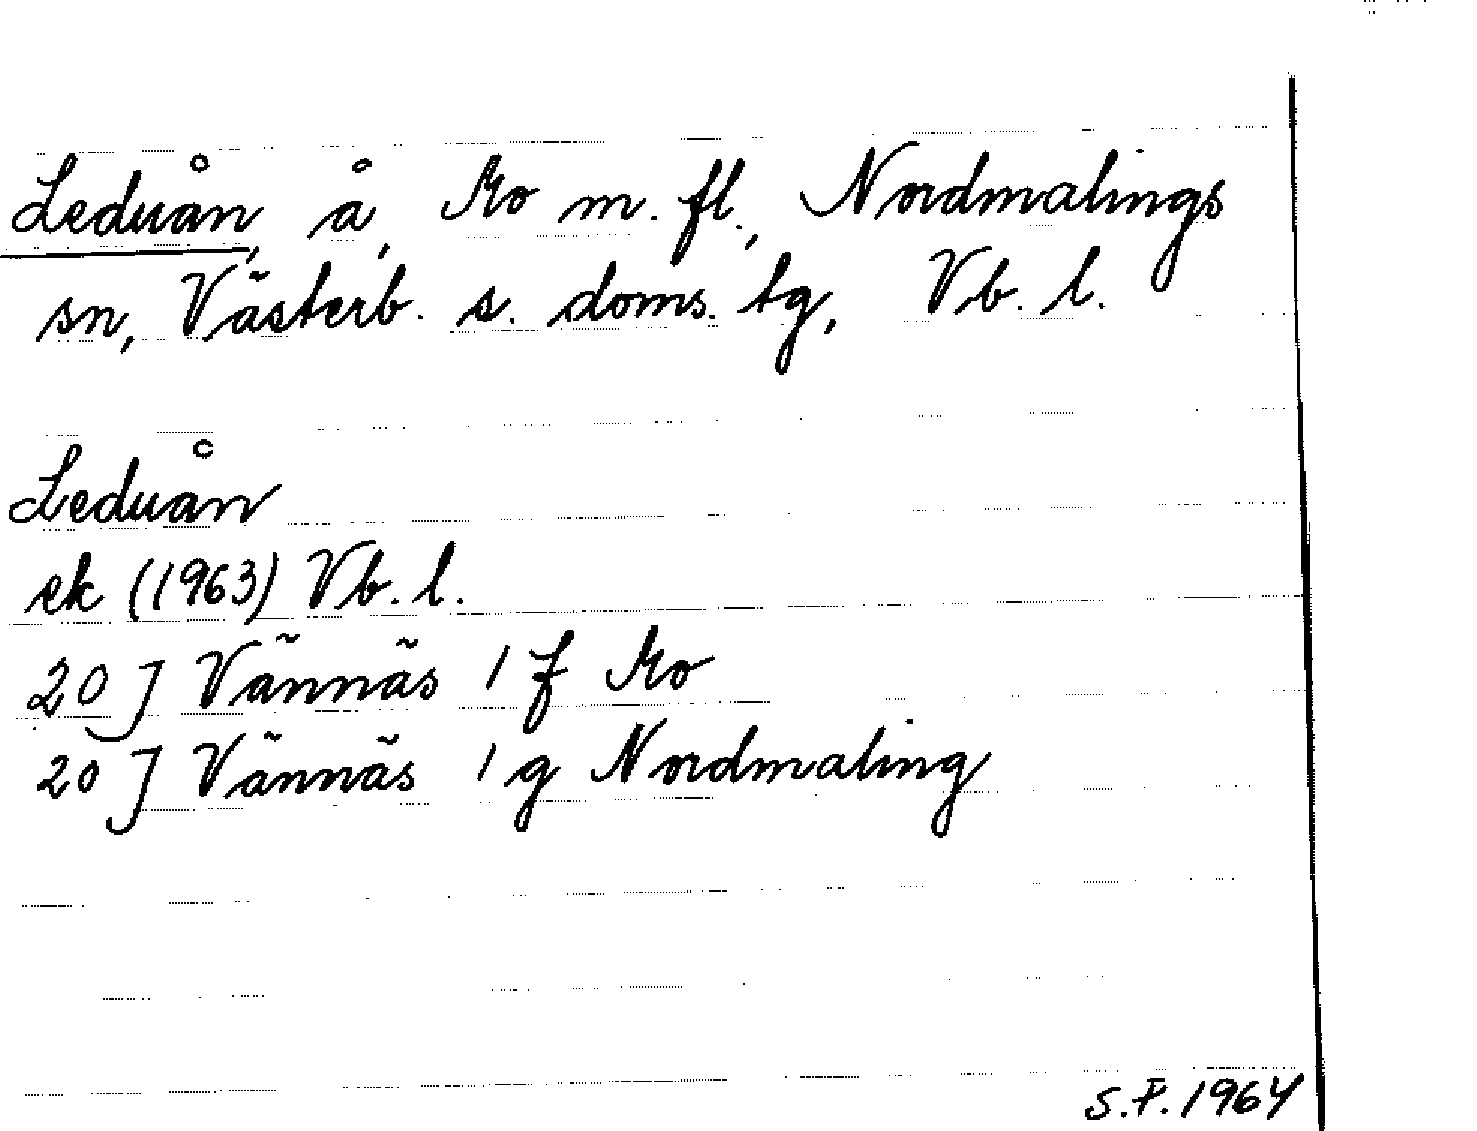 Leduån, å, Mo m. fl., Nordmalings
sn, Västerb. s. doms. tg, Vb. l.
Leduån
ek (1963) Vb. l.
20 J Vännäs 1 f Mo
20 J Vännäs 1 g Nordmaling
S.F. 1964